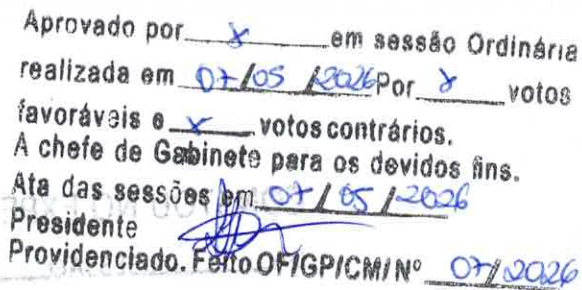 Aprovado por x em sessão Ordinária
realizada em 07/05/2026 Por x votos
favoráveis e x votos contrários.
A chefe de Gabinete para os devidos fins.
Ata das sessões em 07/05/2026
Presidente
Providenciado. Feito OF/GP/CMI Nº 07/2026